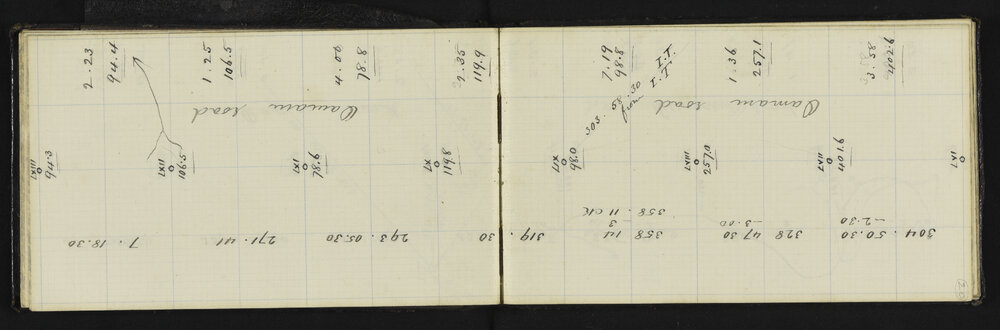 2.23
94.4
1.25
106.5
4.00
78.8
2.35
119.9
7.19
98.8
I.T.
303.58.30
from I.I
1.36
257.1
3.58
402.6
road
road
LXIII
94.3
LXII
106.5
LXI
78.6
LX
119.8
LIX
98.0
LVIII
257.0
LVII
401.6
LVI
304.50.30
-2.30
328 47 30
-3.00
358 14
-3
358.11 CK
319. 30
293.05.30
271.41
7.18.30